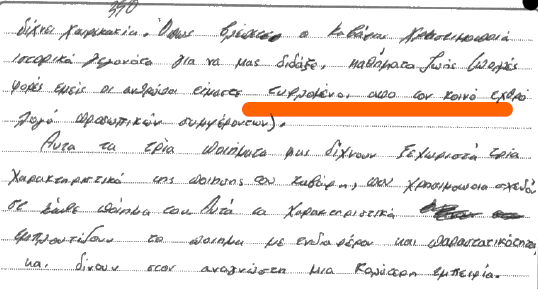 δίχνει χαρακτικία. Όπως βλέπετε ο Καβάφης χρησιμοποιά
ιστορικά γεγονότα για να μας διδάξει μαθήματα ζωής (πολλές
φορές εμείς οι ανθρώποι είμαστε τυφλομένοι απο τον κοινό εχθρό
λογό προσωπικών συμφερόντων).
Αυτα τα τρία ποιήματα μας δίχνουν ξεχωριστά τρία
χαρακτηριστικά της ποίησης του Καβάφη, που χρησιμοποια σχεδόν
σε κάθε ποίημα του. Αυτά τα χαρακτηριστικά
εμπλουτίζουν το ποιημα με ενδιαφέρον και παραστατικότητα,
και δίνουν στον αναγνώστη μια καλύτερη εμπειρία.